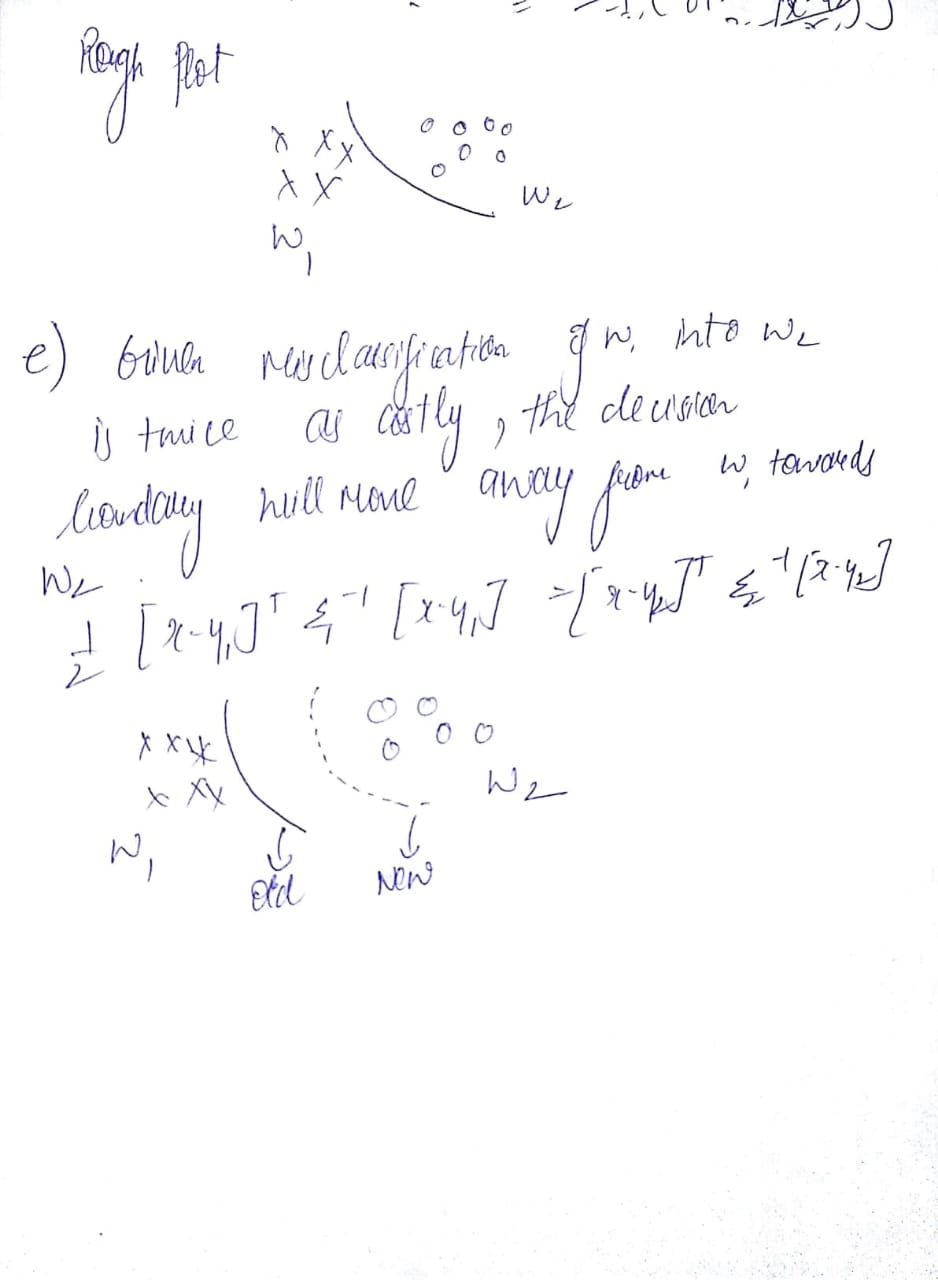 Rough Plot
W₂
W₁
e) Given misclassification of w₁ into w₂
is twice as costly, the decision
boundary will move away from w₁ towards
W₂.
1/2 [x-y₁]ᵀ Σ₁⁻¹ [x-y₁] = [x-y₂]ᵀ Σ₂⁻¹ [x-y₂]
W₂
W₁
Old New